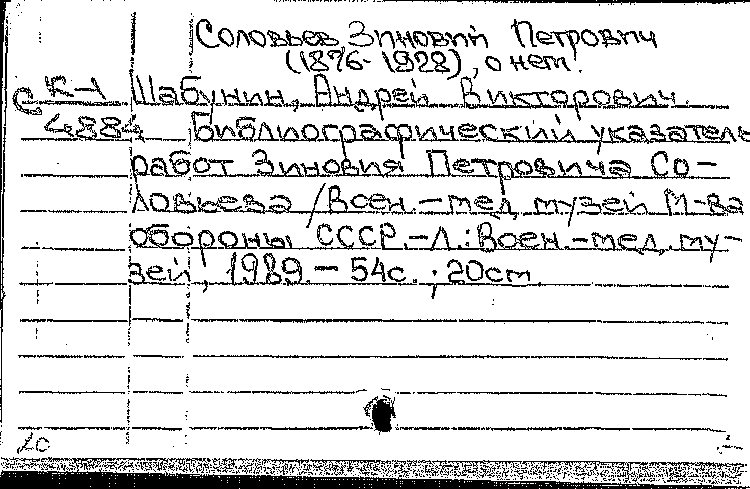 Соловьев Зиновий Петрович
(1876-1928), о нем.
К-1 Шабунин, Андрей Викторович.
4884 Библиографический указатель
работ Зиновия Петровича Со-
ловьева / Воен.-мед. музей М-ва
обороны СССР.-Л.: Воен.-мед. му-
зей, 1989. - 54с. ; 20см.
20